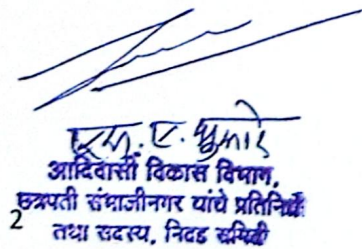 एस. ए. धुमाळ
आदिवासी विकास विभाग,
छत्रपती संभाजीनगर यांचे प्रतिनिधी
2
तथा सदस्य, निवड समिती